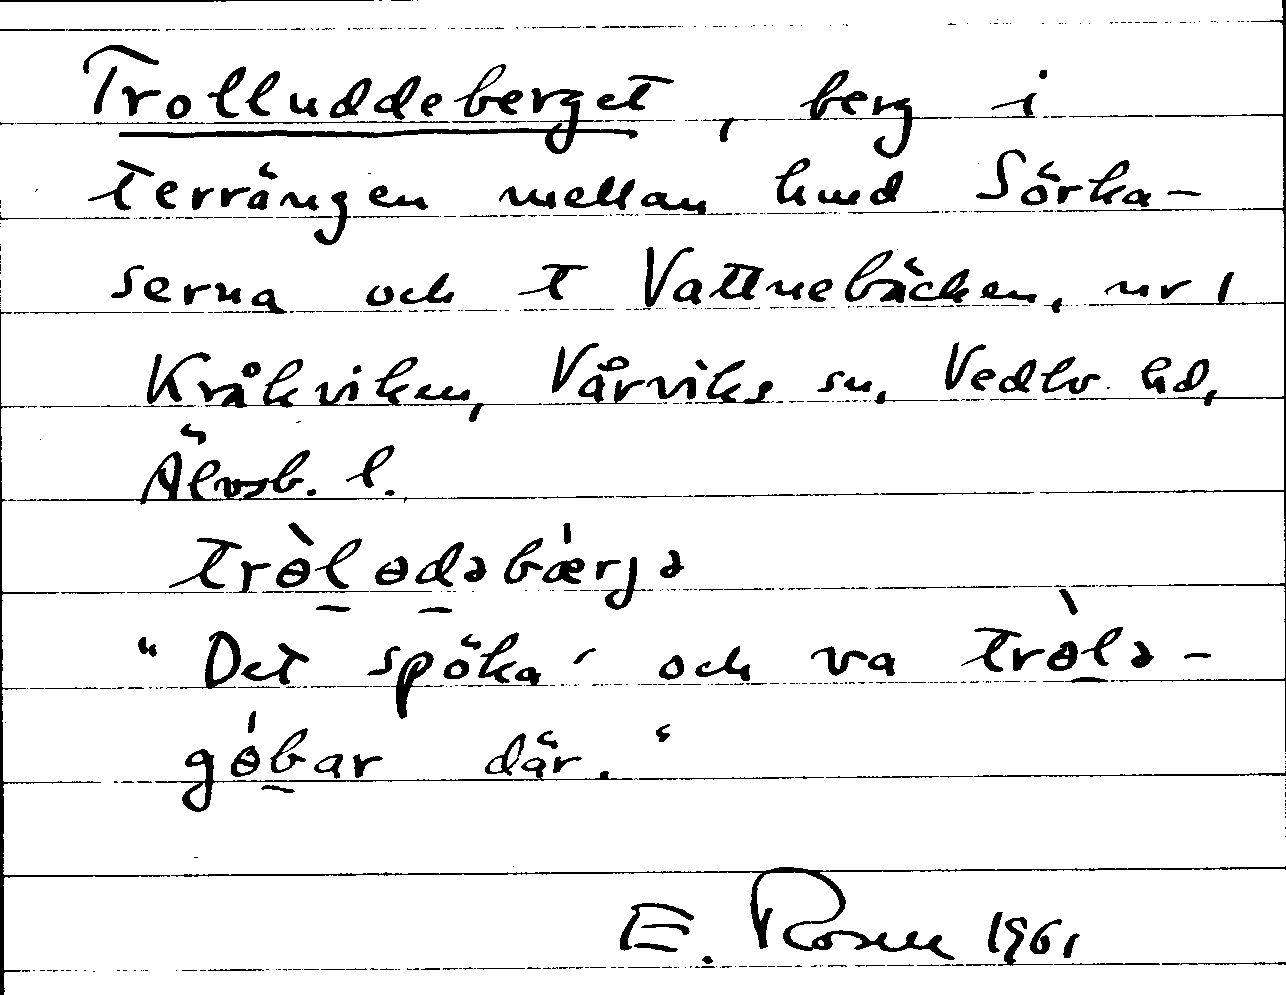 Trolluddeberget, berg i
terrängen mellan hmd Sörka-
serna och t Vattnebäcken, nr 1
Kråkviken, Vårviks sn, Vedbo hd,
Älvsb. l.
trɵ̀l̠ɵd̠əbǽrjə
"Det spöka' och va trɵ̀l̠ə-
gɵ́b̠ar där."
E. Rosen 1961